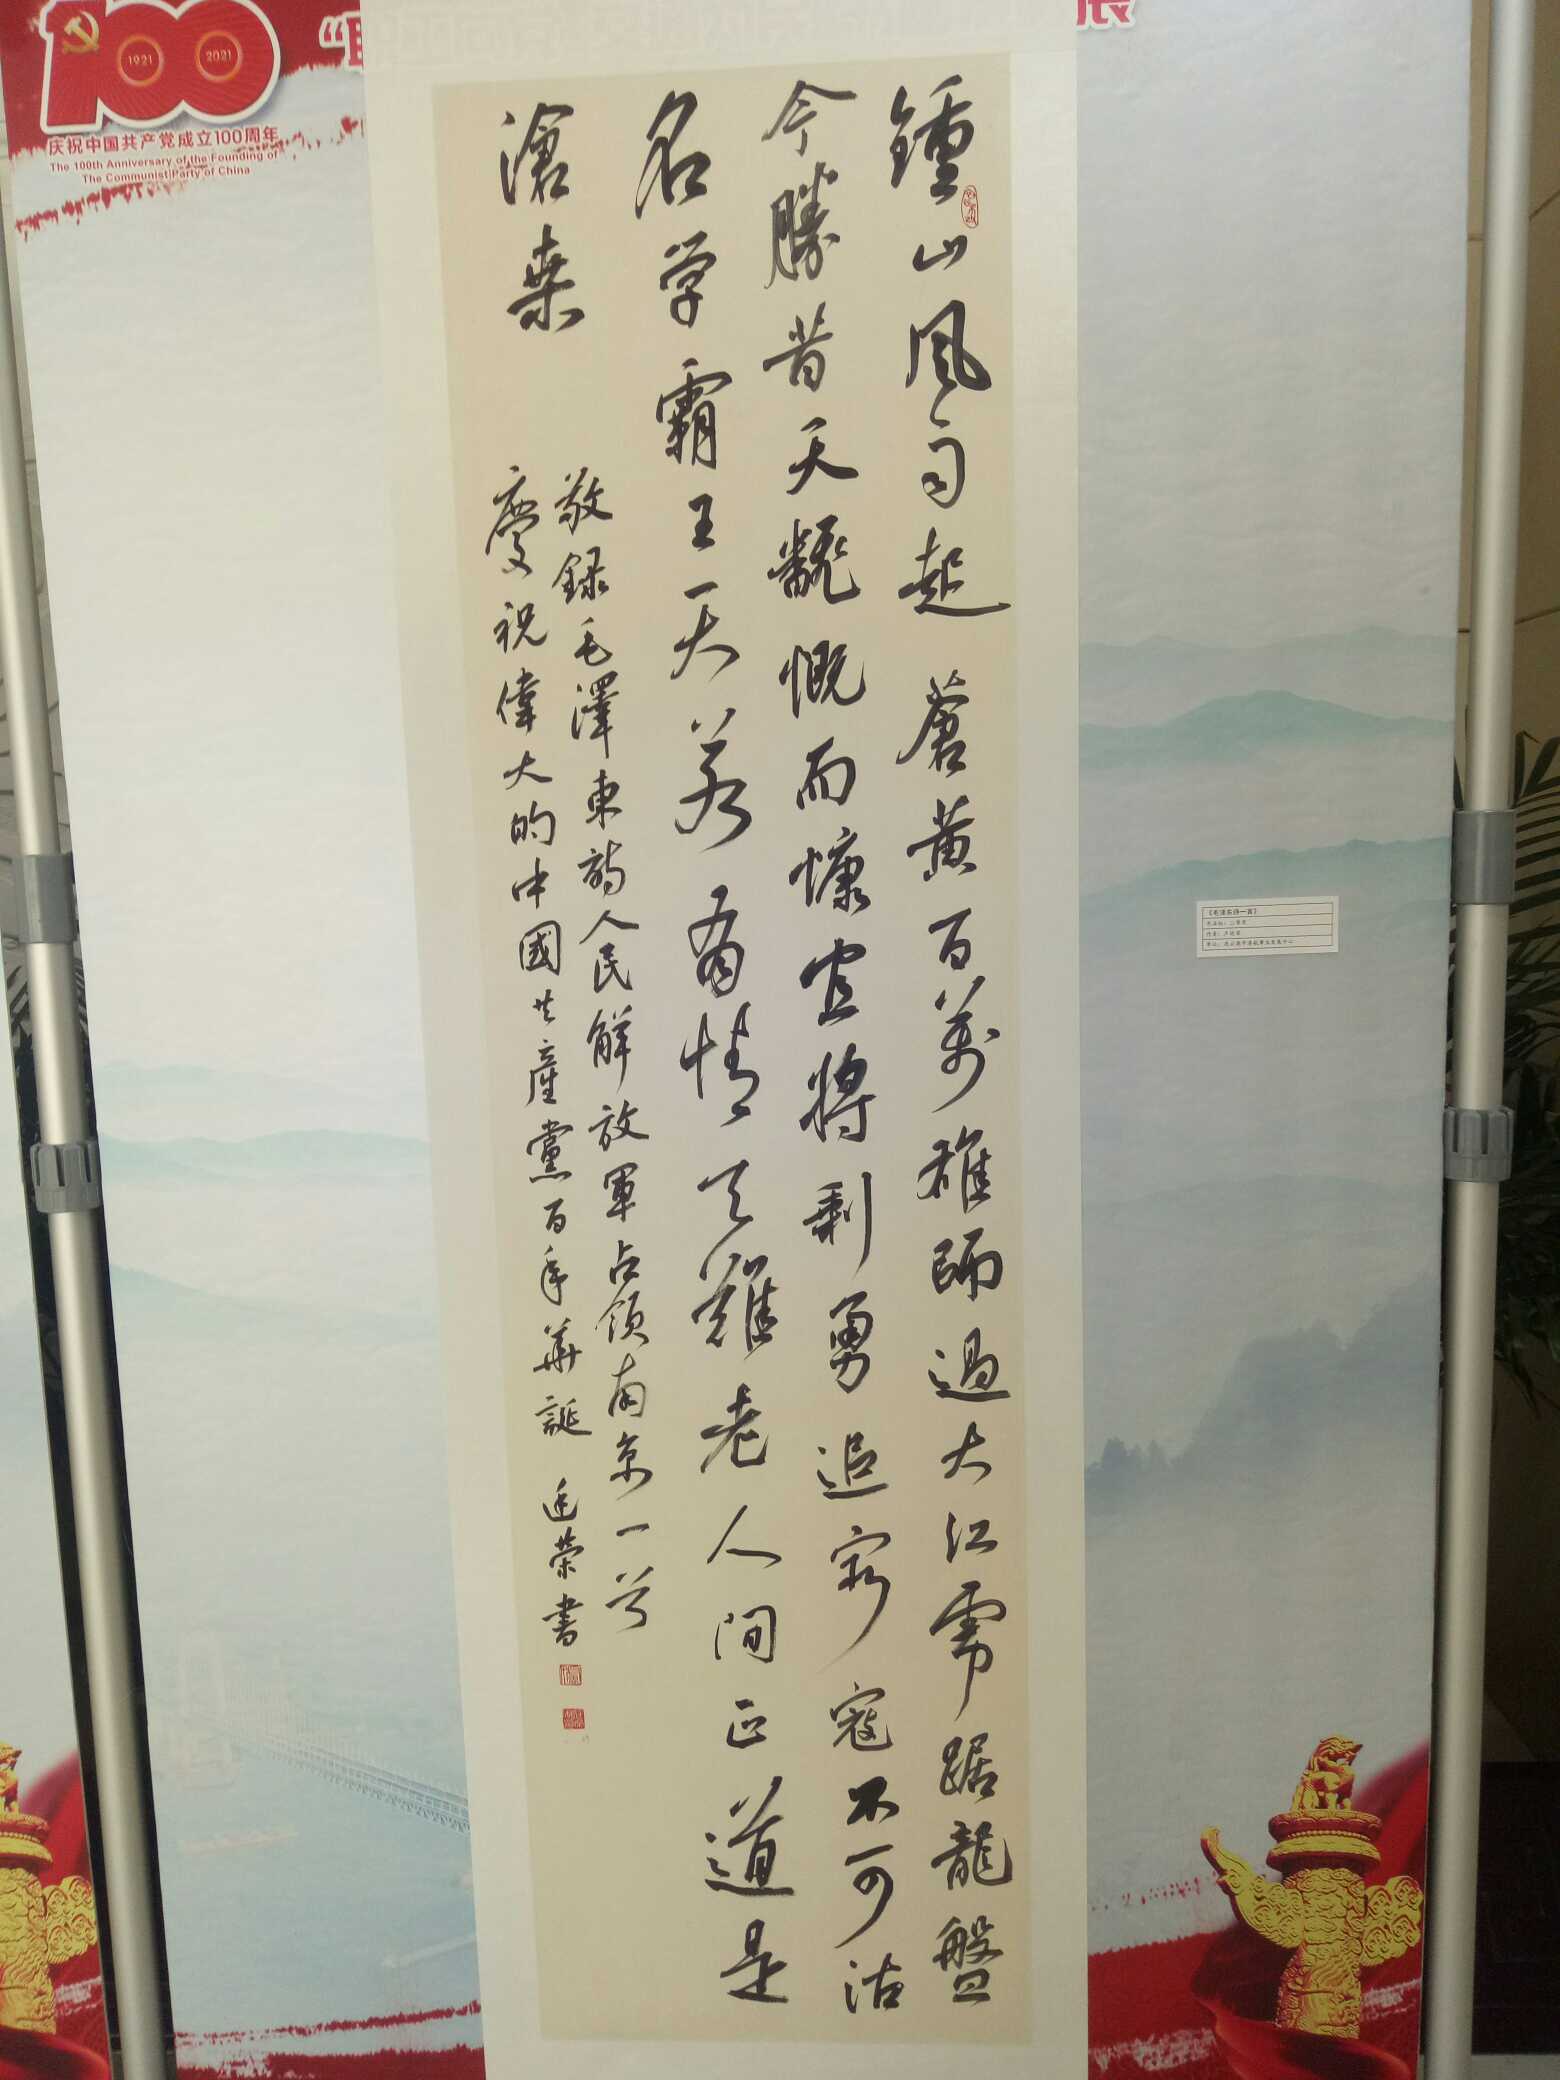 1921
2021
庆祝中国共产党成立100周年
The 100th Anniversary of the Founding of
The Communist Party of China
鍾山風雨起蒼黃百萬雄師過大江虎踞龍盤
今勝昔天翻慨而慷宜將剩勇追窮寇不可沽
名学霸王天若有情天難老人间正道是
滄桑
敬録毛澤東詩人民解放軍占领南京一首
慶祝偉大的中國共產黨百年華誕 廷荣書
《毛泽东诗一首》